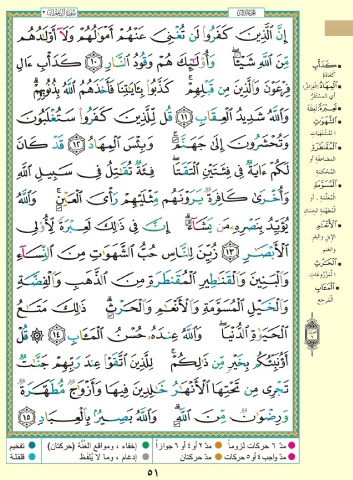 إِنَّ الَّذِينَ كَفَرُوا لَن تُغْنِيَ عَنْهُمْ أَمْوَالُهُمْ وَلَا أَوْلَادُهُم
مِّنَ اللَّهِ شَيْئًا وَأُولَٰئِكَ هُمْ وَقُودُ النَّارِ ١٠ كَدَأْبِ آلِ
فِرْعَوْنَ وَالَّذِينَ مِن قَبْلِهِمْ كَذَّبُوا بِآيَاتِنَا فَأَخَذَهُمُ اللَّهُ بِذُنُوبِهِمْ
وَاللَّهُ شَدِيدُ الْعِقَابِ ١١ قُل لِّلَّذِينَ كَفَرُوا سَتُغْلَبُونَ
وَتُحْشَرُونَ إِلَىٰ جَهَنَّمَ وَبِئْسَ الْمِهَادُ ١٢ قَدْ كَانَ
لَكُمْ آيَةٌ فِي فِئَتَيْنِ الْتَقَتَا فِئَةٌ تُقَاتِلُ فِي سَبِيلِ اللَّهِ
وَأُخْرَىٰ كَافِرَةٌ يَرَوْنَهُم مِّثْلَيْهِمْ رَأْيَ الْعَيْنِ وَاللَّهُ
يُؤَيِّدُ بِنَصْرِهِ مَن يَشَاءُ إِنَّ فِي ذَٰلِكَ لَعِبْرَةً لِّأُولِي
الْأَبْصَارِ ١٣ زُيِّنَ لِلنَّاسِ حُبُّ الشَّهَوَاتِ مِنَ النِّسَاءِ
وَالْبَنِينَ وَالْقَنَاطِيرِ الْمُقَنطَرَةِ مِنَ الذَّهَبِ وَالْفِضَّةِ
وَالْخَيْلِ الْمُسَوَّمَةِ وَالْأَنْعَامِ وَالْحَرْثِ ذَٰلِكَ مَتَاعُ
الْحَيَاةِ الدُّنْيَا وَاللَّهُ عِندَهُ حُسْنُ الْمَآبِ ١٤ قُلْ
أَؤُنَبِّئُكُم بِخَيْرٍ مِّن ذَٰلِكُمْ لِلَّذِينَ اتَّقَوْا عِندَ رَبِّهِمْ جَنَّاتٌ
تَجْرِي مِن تَحْتِهَا الْأَنْهَارُ خَالِدِينَ فِيهَا وَأَزْوَاجٌ مُّطَهَّرَةٌ
وَرِضْوَانٌ مِّنَ اللَّهِ وَاللَّهُ بَصِيرٌ بِالْعِبَادِ ١٥
كَدَأْبِ
كعادة
الْمِهَادُ
لَعِبْرَةً
الشَّهَوَاتِ
المشتهيات
الْمُقَنطَرَةِ
المضاعفة أو
المحكمة
الْمُسَوَّمَةِ
الْأَنْعَامِ
الإبل والبقر
والغنم
الْحَرْثِ
المزروعات
الْمَآبِ
المرجع
مدّ ٦ حركات لزوماً مدّ ٢ أو ٤ أو ٦ جوازاً إخفاء، ومواقع الغُنَّة (حركتان) تفخيم
مدّ واجب ٤ أو ٥ حركات مدّ حركتان إدغام، وما لا يُلفَظ قلقلة
٥١